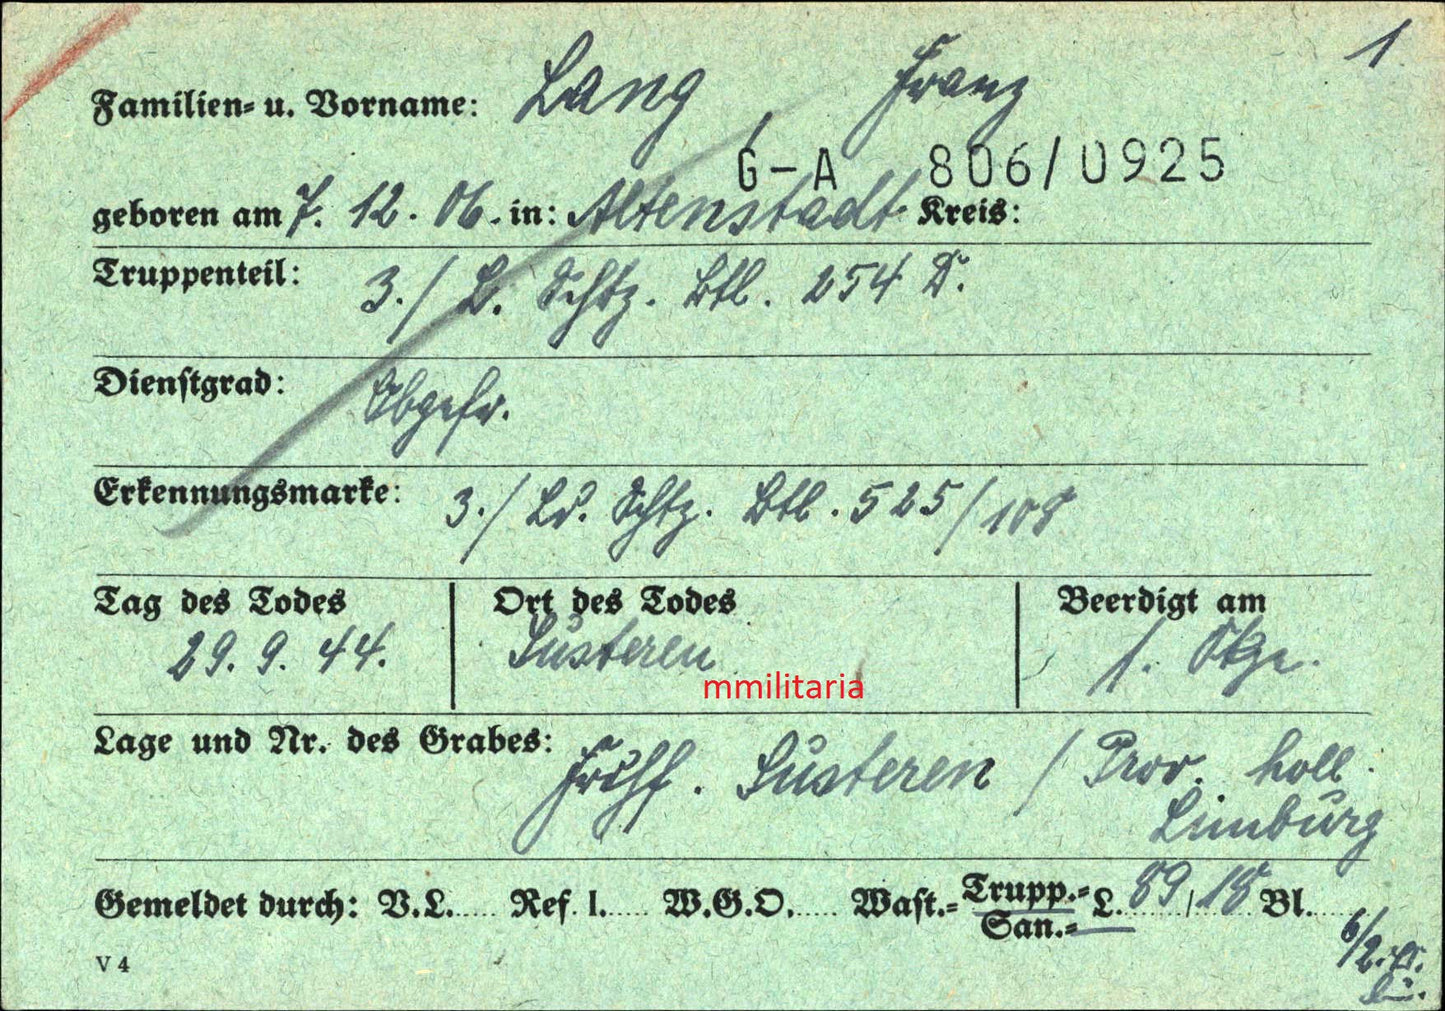 1
Familien= u. Vorname: Lang, Franz
G-A 806/0925
geboren am 7. 12. 06. in: Altenstadt Kreis:
Truppenteil: 3./ L. Schtz. Btl. 254 D.
Dienstgrad: Obgefr.
Erkennungsmarke: 3./ Ld. Schtz. Btl. 525/108
Tag des Todes Ort des Todes Beerdigt am
29. 9. 44. Süsteren 1. Okt.
mmilitaria
Lage und Nr. des Grabes: Frdhf. Süsteren / Prov. holl.
Limburg
Gemeldet durch: V.L..... Ref. I..... W.G.O..... Wast.= Trupp.= L. 89/18 Bl.....
San.=
6/2.
V 4